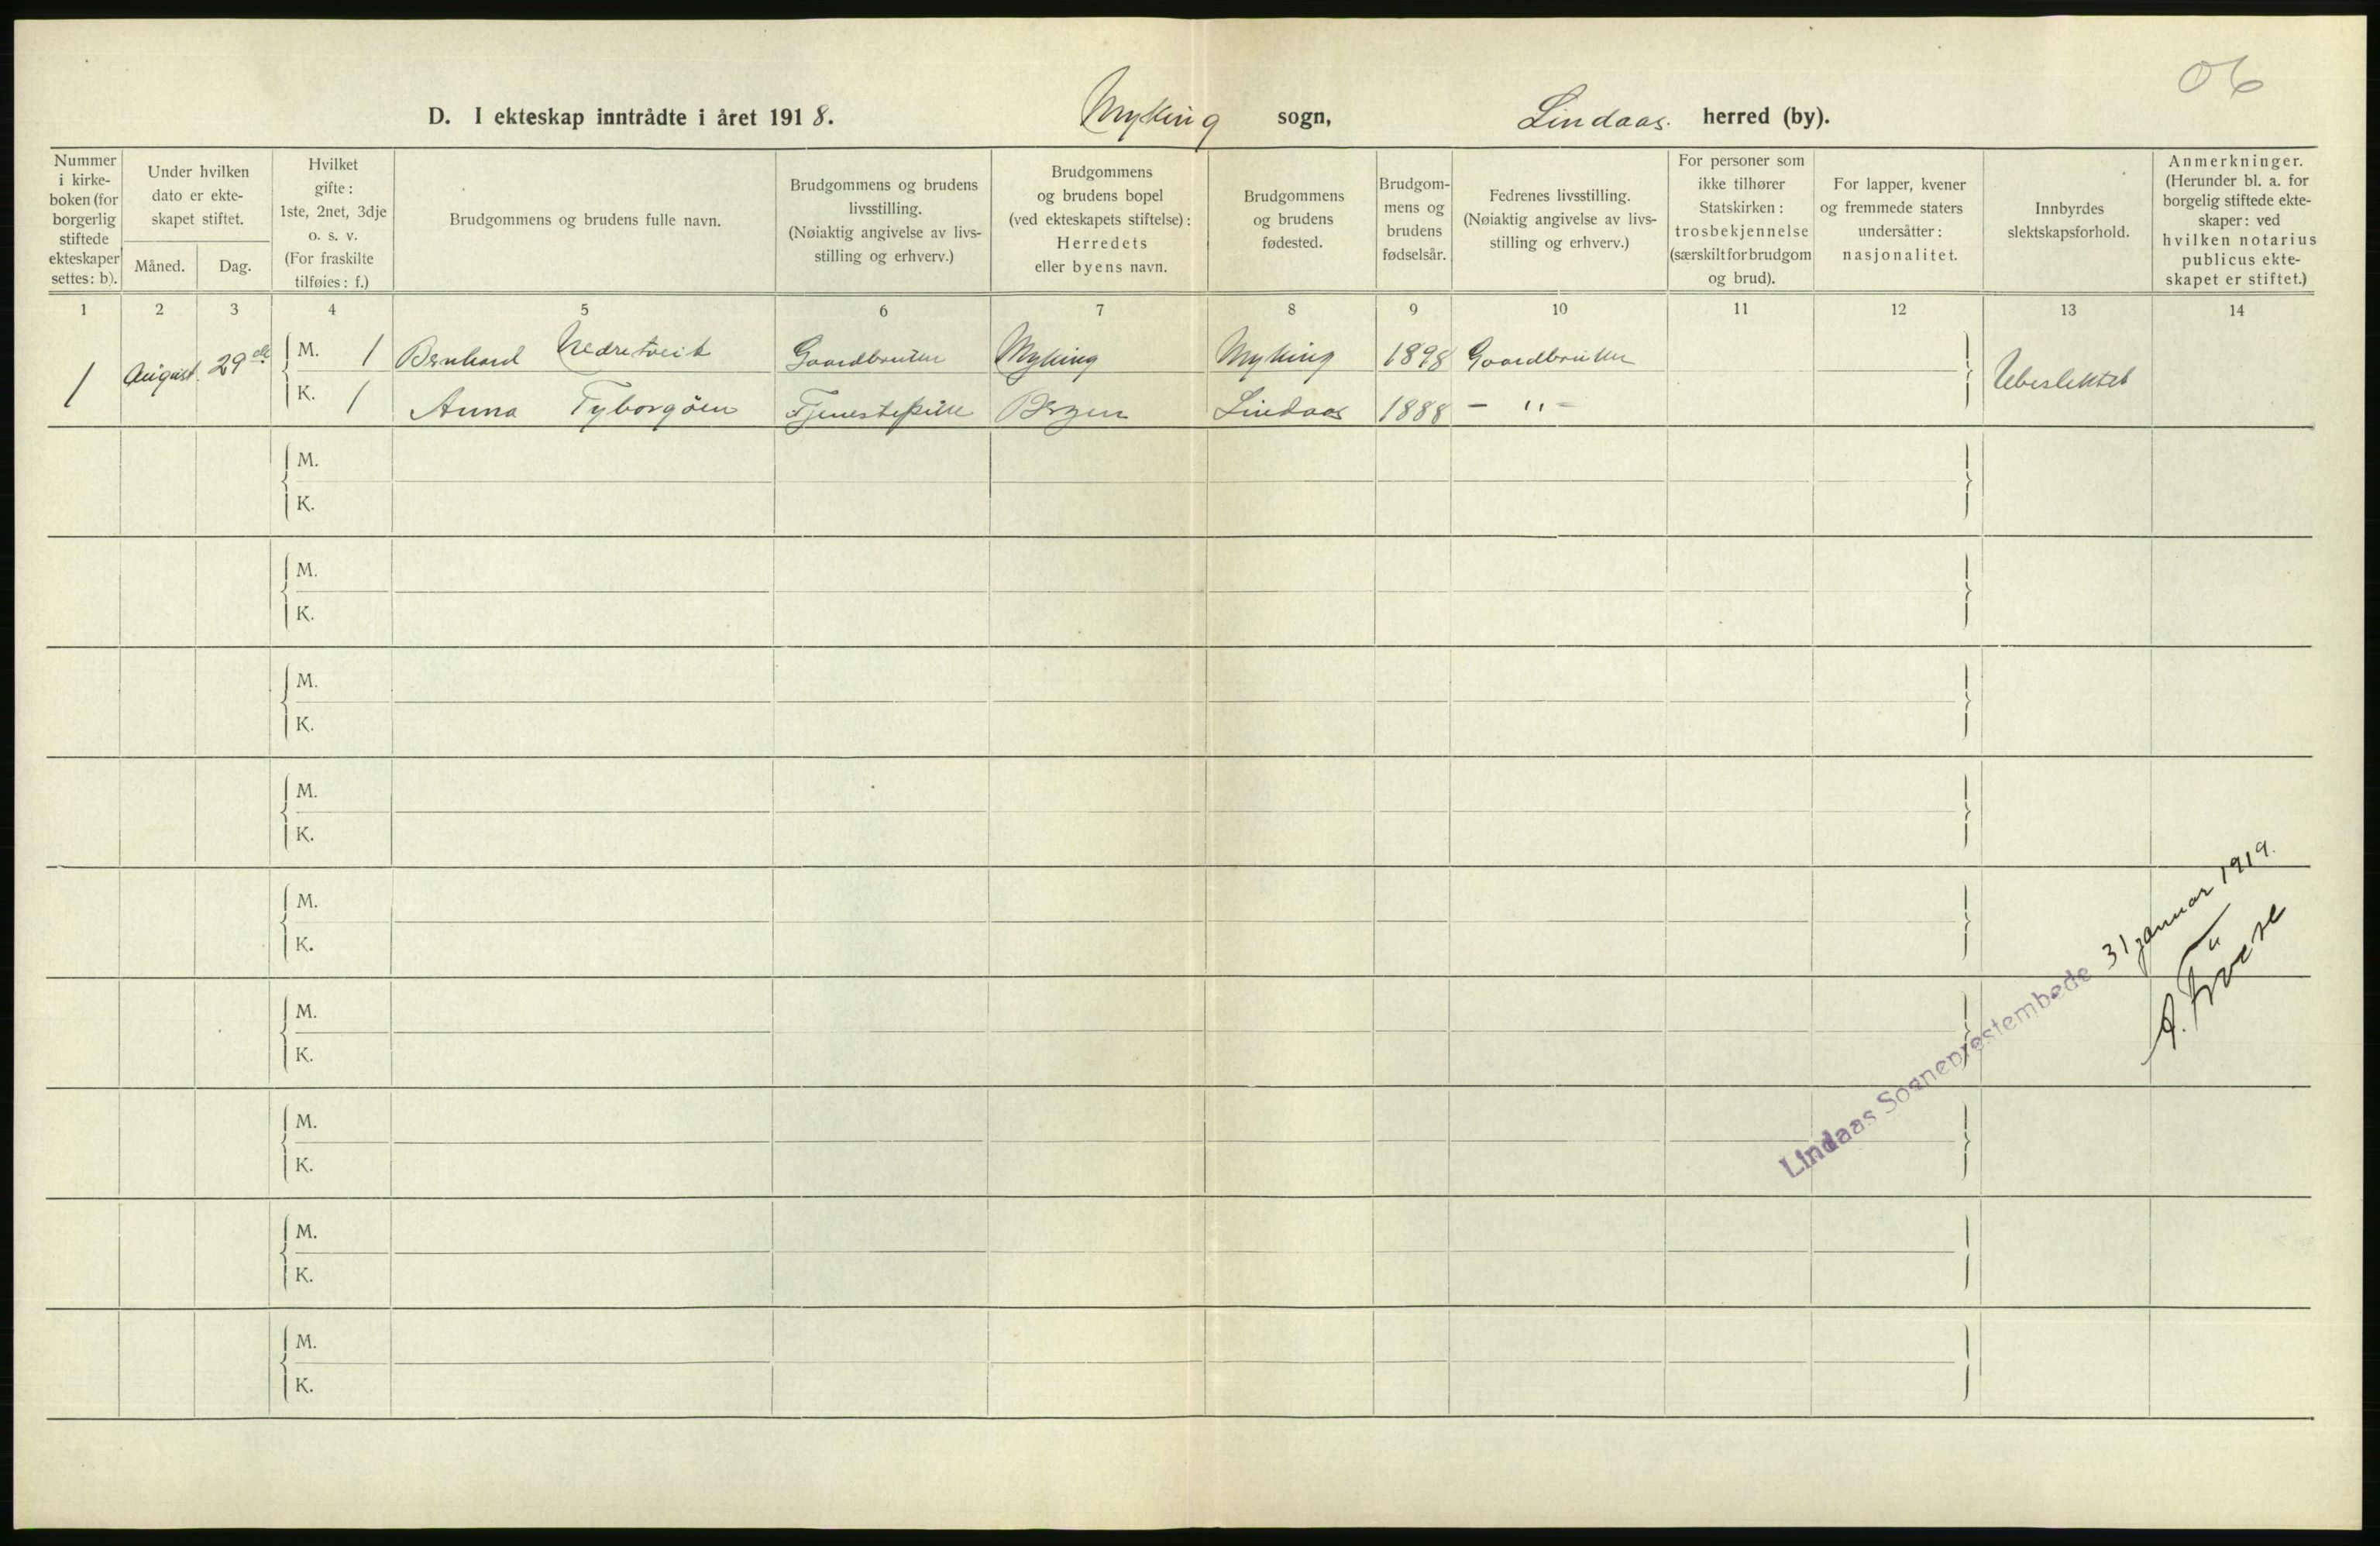 06
D. I ekteskap inntrådte i året 1918. Myking sogn, Lindaas. herred (by).
Nummer
i kirke-
boken (for
borgerlig
stiftede
ekteskaper
settes: b).
Under hvilken
dato er ekte-
skapet stiftet.
Måned.
Dag.
Hvilket
gifte:
1ste, 2net, 3dje
o. s. v.
(For fraskilte
tilføies: f.)
Brudgommens og brudens fulle navn.
Brudgommens og brudens
livsstilling.
(Nøiaktig angivelse av livs-
stilling og erhverv.)
Brudgommens
og brudens bopel
(ved ekteskapets stiftelse):
Herredets
eller byens navn.
Brudgommens
og brudens
fødested.
Brudgom-
mens og
brudens
fødselsår.
Fedrenes livsstilling.
(Nøiaktig angivelse av livs-
stilling og erhverv.)
For personer som
ikke tilhører
Statskirken:
trosbekjennelse
(særskilt for brudgom
og brud).
For lapper, kvener
og fremmede staters
undersåtter:
nasjonalitet.
Innbyrdes
slektskapsforhold.
Anmerkninger.
(Herunder bl. a. for
borgelig stiftede ekte-
skaper: ved
hvilken notarius
publicus ekte-
skapet er stiftet.)
1 2 3 4 5 6 7 8 9 10 11 12 13 14
1 August. 29de M. 1 Bernhard Nedretveit Gaardbruker Myking Myking 1898 Gaardbruker Ubeslektet
K. 1 Anna Tyborgöen Tjenestepike Bergen Lindaas 1888 - " -
M.
K.
M.
K.
M.
K.
M.
K.
M.
K.
M.
K.
M.
K.
M.
K.
M.
K.
Lindaas Sogneprestembede 31 januar 1919.